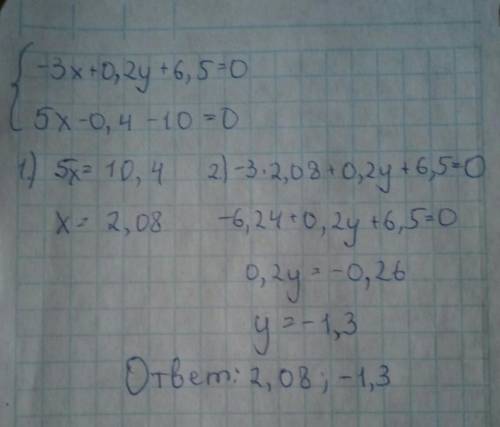 -3x+0,2y+6,5=0
5x-0,4-10=0
1) 5x=10,4 2) -3·2,08+0,2y+6,5=0
x=2,08 -6,24+0,2y+6,5=0
0,2y=-0,26
y=-1,3
Ответ: 2,08; -1,3